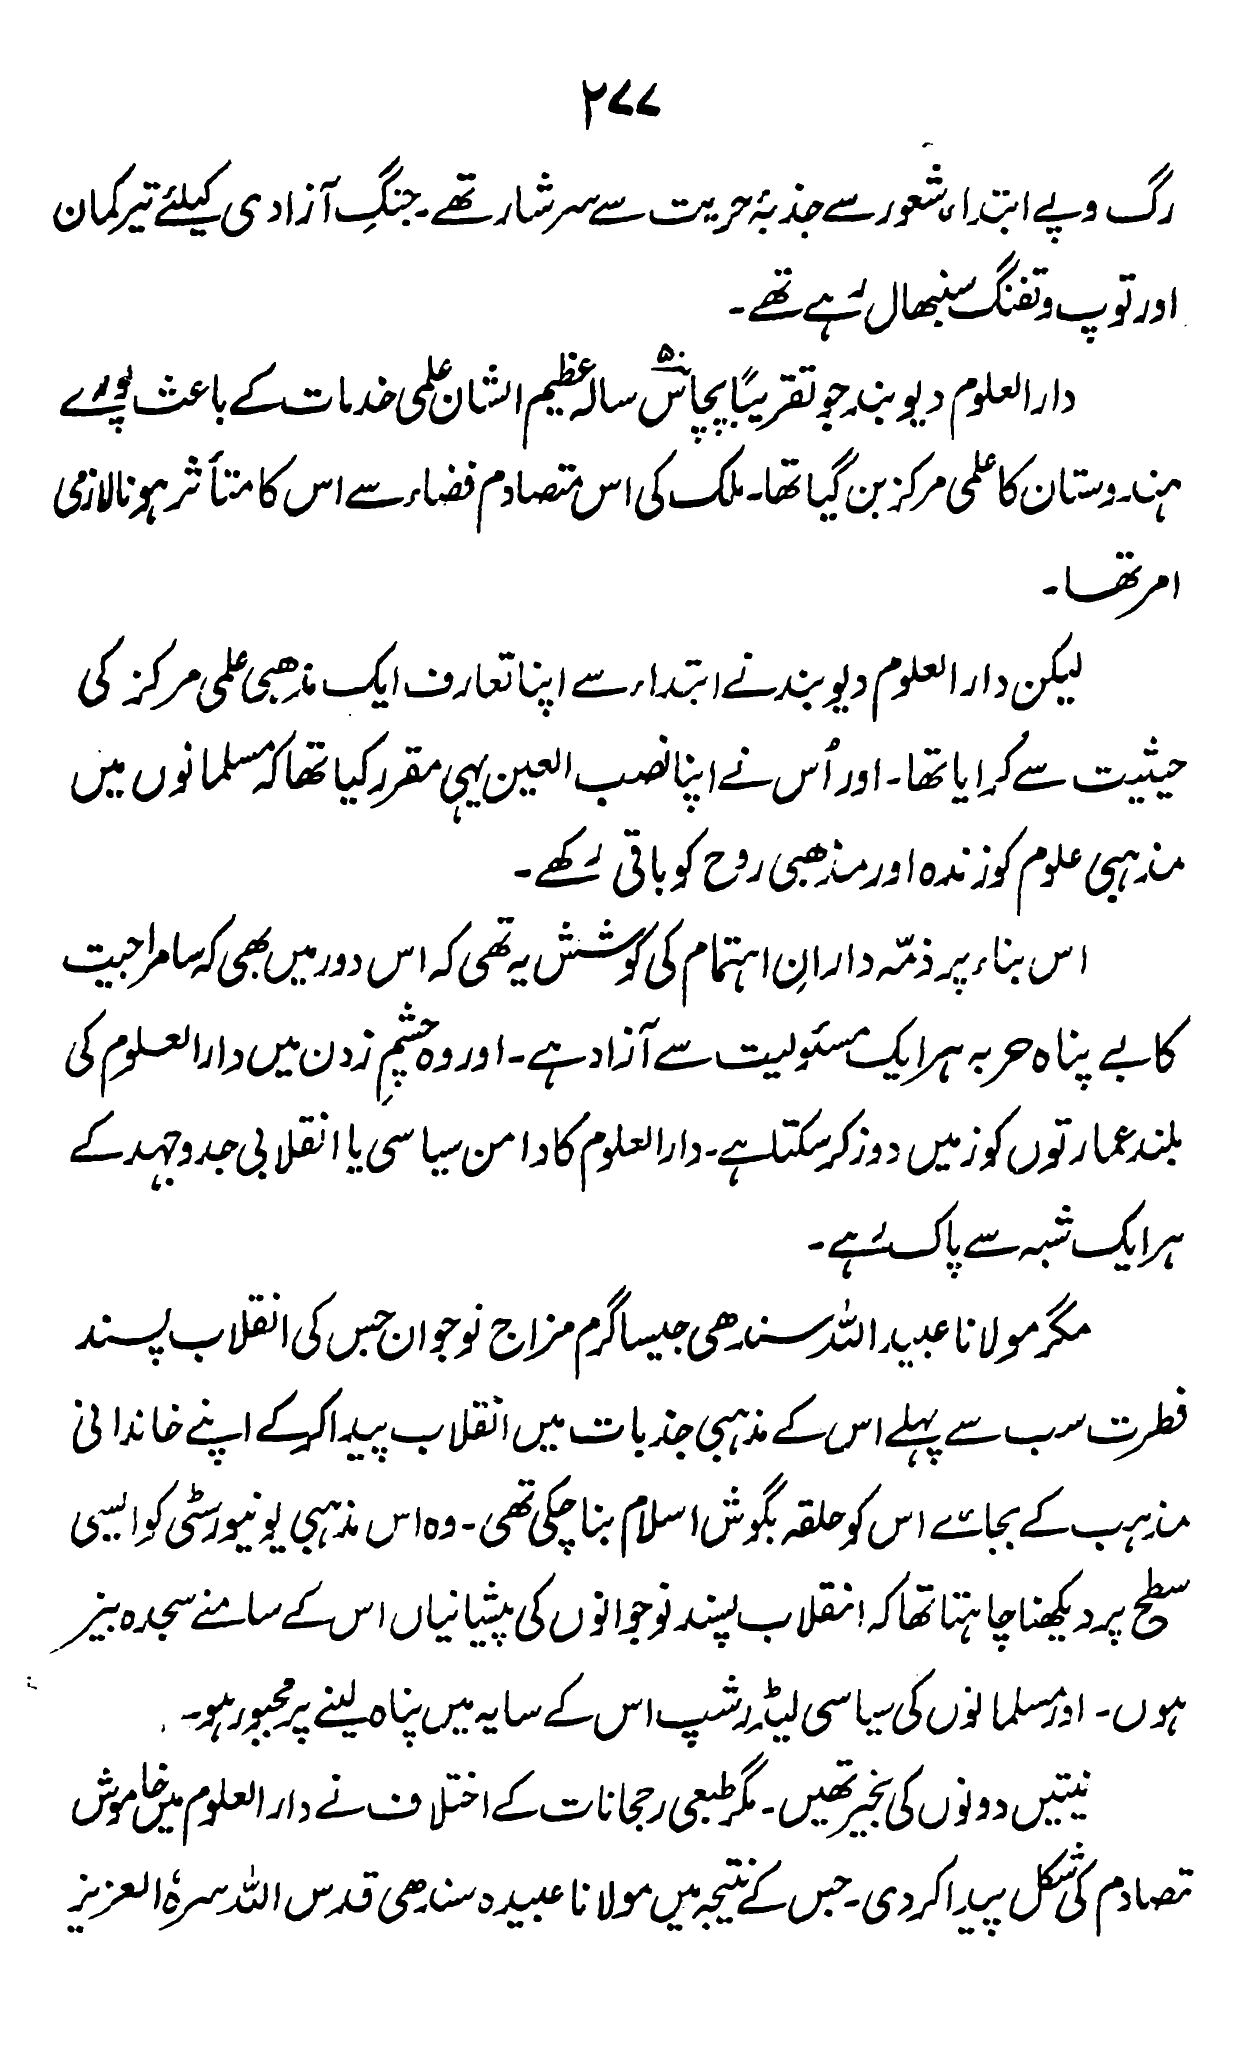 ۲۷۷
رگ و پے ابتداء شعور سے جذبۂ حریت سے سرشار تھے۔ جنگِ آزادی کیلئے تیر کمان
اور توپ و تفنگ سنبھال رہے تھے۔
دار العلوم دیوبند جو تقریباً پچاس ۵۰ سالہ عظیم الشان علمی خدمات کے باعث پورے
ہندوستان کا علمی مرکز بن گیا تھا۔ ملک کی اس متصادم فضاء سے اس کا متأثر ہونا لازمی
امر تھا۔
لیکن دار العلوم دیوبند نے ابتداء سے اپنا تعارف ایک مذھبی علمی مرکز کی
حیثیت سے کرایا تھا۔ اور اُس نے اپنا نصب العین یہی مقرر کیا تھا کہ مسلمانوں میں
مذہبی علوم کو زندہ اور مذھبی روح کو باقی رکھے۔
اس بناء پر ذمّہ دارانِ اہتمام کی کوشش یہ تھی کہ اس دور میں بھی کہ سامراجیت
کا بے پناہ حربہ ہر ایک مسئولیت سے آزاد ہے۔ اور وہ چشمِ زدن میں دار العلوم کی
بلند عمارتوں کو زمیں دوز کر سکتا ہے۔ دار العلوم کا دامن سیاسی یا انقلابی جدوجہد کے
ہر ایک شبہ سے پاک رہے۔
مگر مولانا عبید اللہ سندھی جیسا گرم مزاج نوجوان جس کی انقلاب پسند
فطرت سب سے پہلے اس کے مذہبی جذبات میں انقلاب پیدا کر کے اپنے خاندانی
مذہب کے بجائے اس کو حلقہ بگوش اسلام بنا چکی تھی۔ وہ اس مذہبی یونیورسٹی کو ایسی
سطح پر دیکھنا چاہتا تھا کہ انقلاب پسند نوجوانوں کی پیشانیاں اس کے سامنے سجدہ بیز
ہوں۔ اور مسلمانوں کی سیاسی لیڈرشپ اس کے سایہ میں پناہ لینے پر مجبور ہو۔
نیتیں دونوں کی بخیر تھیں۔ مگر طبعی رجحانات کے اختلاف نے دار العلوم میں خاموش
تصادم کی شکل پیدا کر دی۔ جس کے نتیجہ میں مولانا عبیدہ سندھی قدس اللہ سرہٗ العزیز